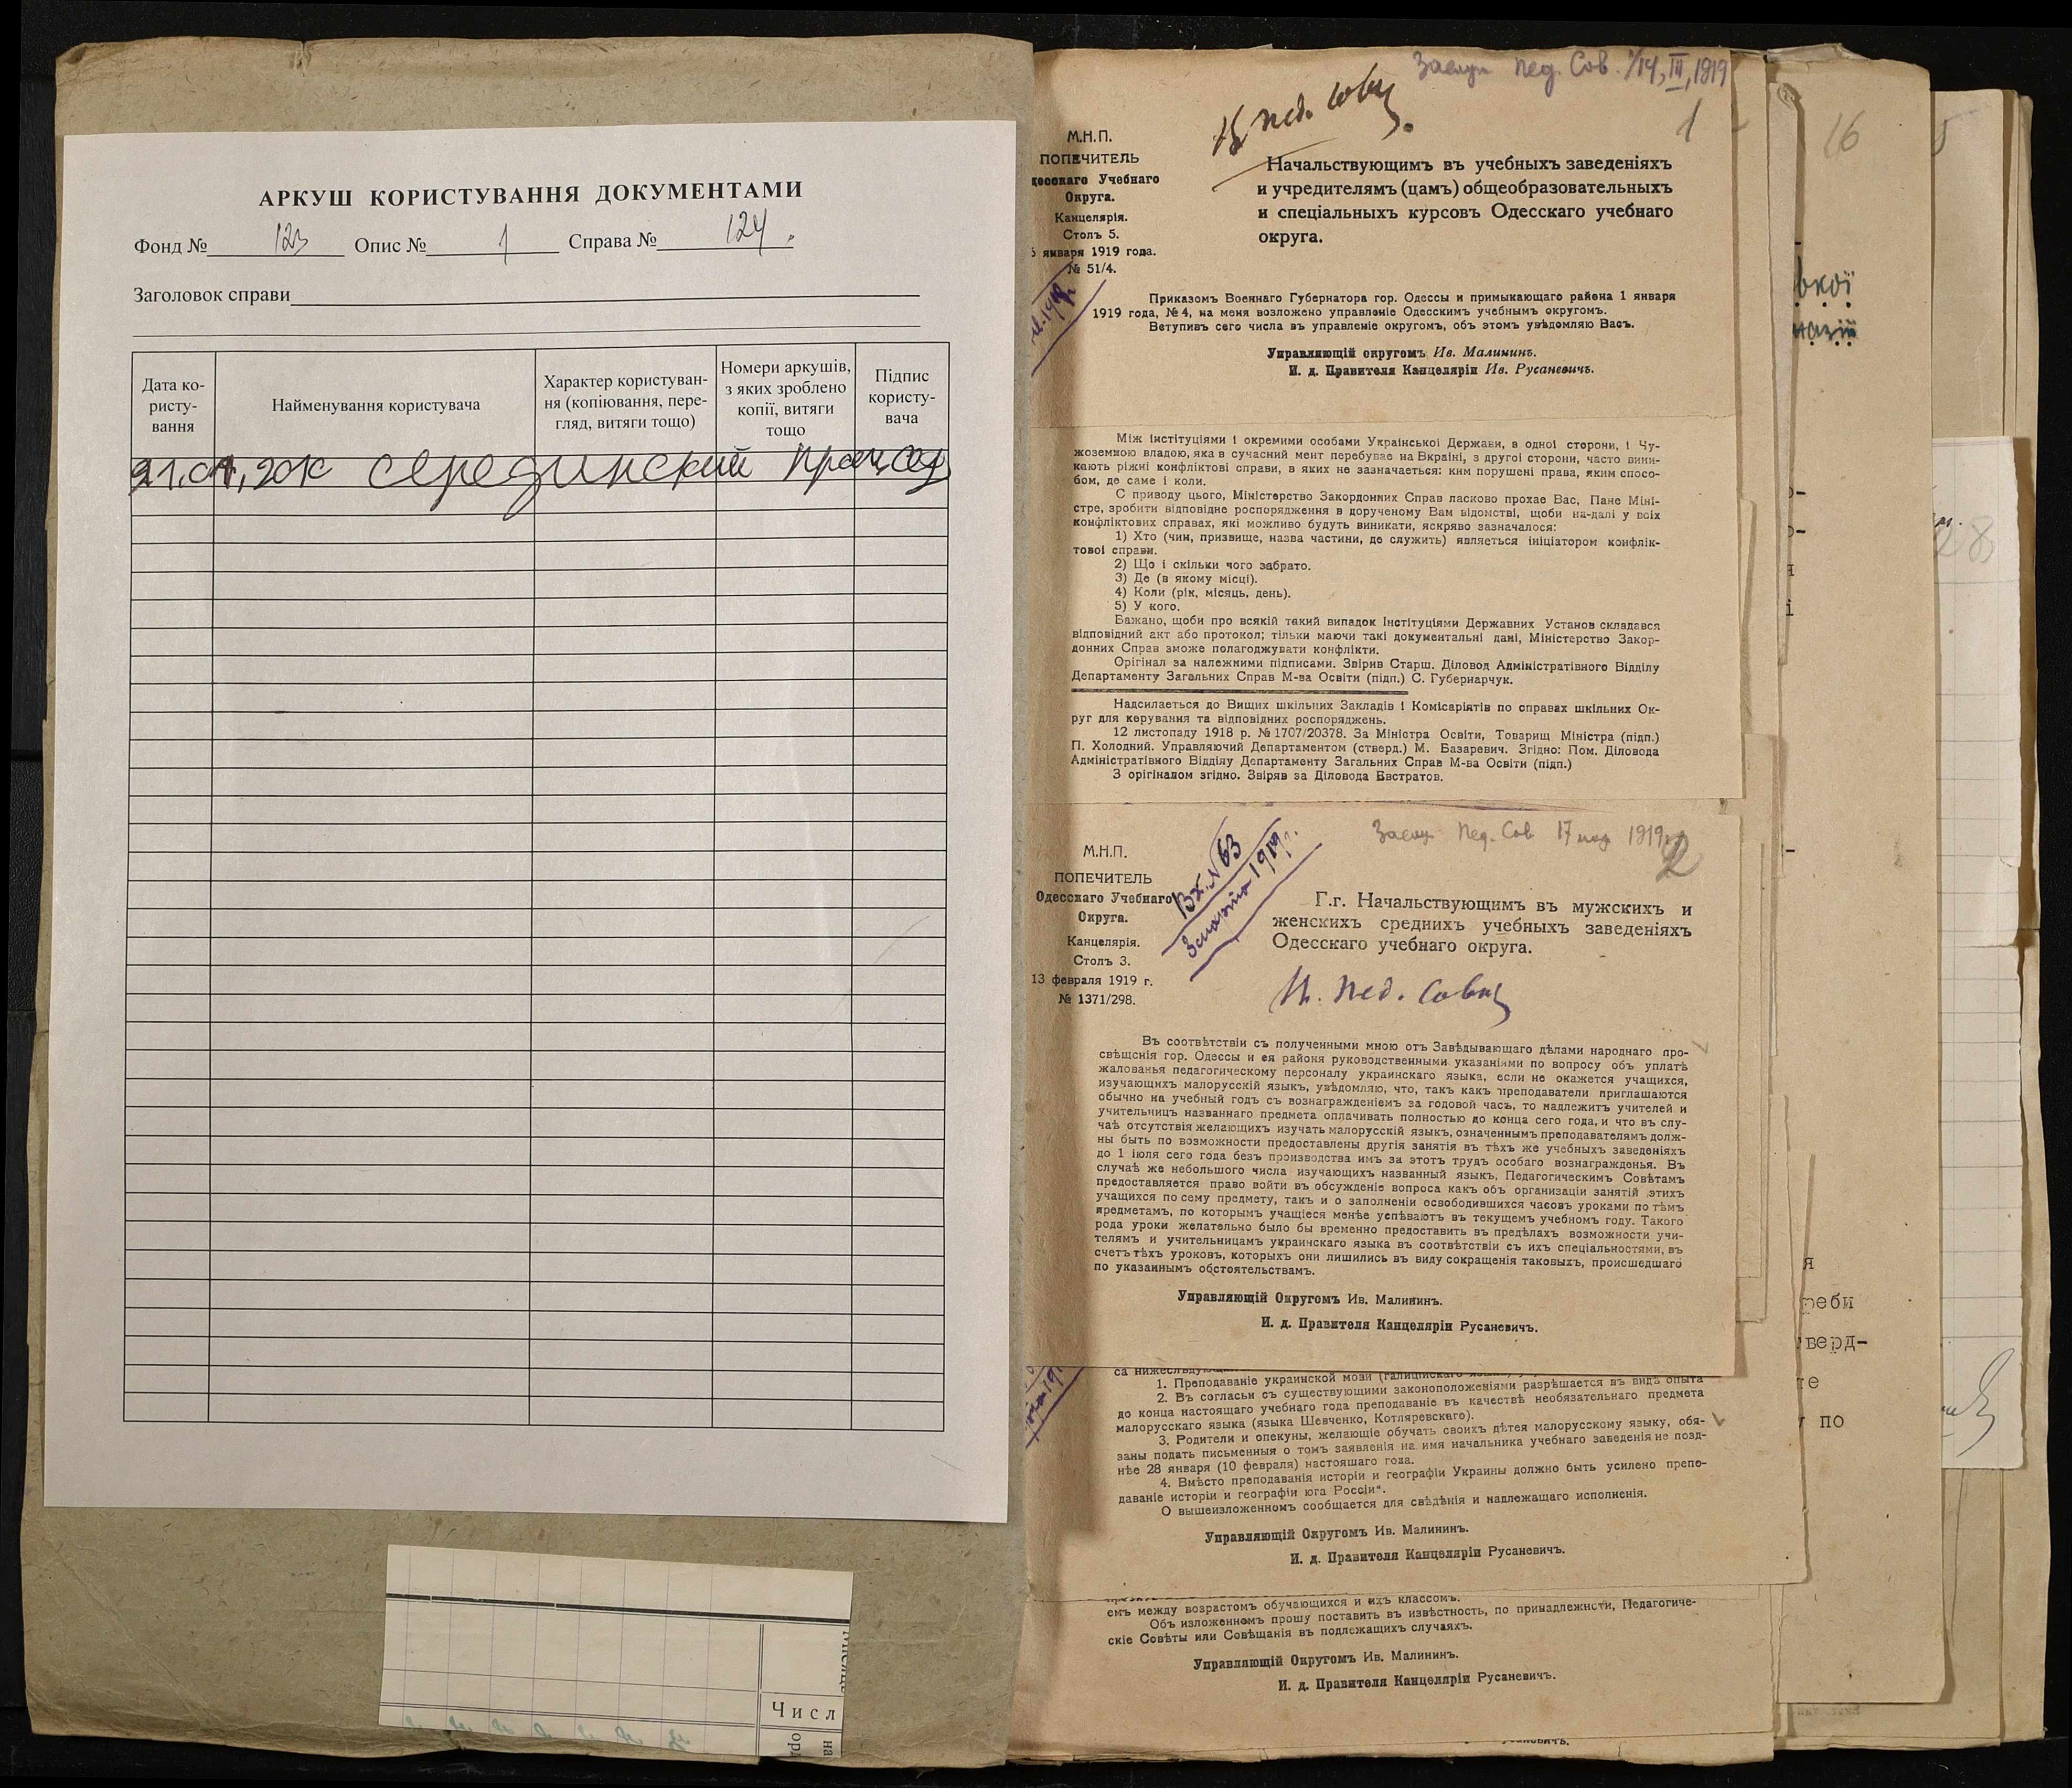 АРКУШ КОРИСТУВАННЯ ДОКУМЕНТАМИ
Фонд № 123 Опис № 1 Справа № 124
Заголовок справи
Дата ко-
ристу-
вання
Найменування користувача
Характер користуван-
ня (копіювання, пере-
гляд, витяги тощо)
Номери аркушів,
з яких зроблено
копії, витяги
тощо
Підпис
користу-
вача
Серединский
Числ
на
Пед. Сов. 1/14, III, 1919
пед. совѣ
1
М.Н.П.
ПОПЕЧИТЕЛЬ
Одесскаго Учебнаго
Округа.
Канцелярія.
Столъ 5.
января 1919 года.
№ 51/4.
Начальствующимъ въ учебныхъ заведеніяхъ
и учредителямъ (цамъ) общеобразовательныхъ
и спеціальныхъ курсовъ Одесскаго учебнаго
округа.
Приказомъ Военнаго Губернатора гор. Одессы и примыкающаго района 1 января
1919 года, № 4, на меня возложено управленіе Одесскимъ учебнымъ округомъ.
Вступивъ сего числа въ управленіе округомъ, объ этомъ увѣдомляю Васъ.
Управляющій округомъ Ив. Малининъ.
И. д. Правителя Канцеляріи Ив. Русаневичъ.
Між інституціями і окремими особами Української Держави, в одної сторони, і Чу-
жоземною владою, яка в сучасний мент перебуває на Вкраїні, з другої сторони, часто вини-
кають ріжні конфліктові справи, в яких не зазначається: ким порушені права, яким спосо-
бом, де саме і коли.
С приводу цього, Міністерство Закордонних Справ ласкаво прохає Вас, Пане Міні-
стре, зробити відповідне роспорядження в дорученому Вам відомстві, щоби на-далі у всіх
конфліктових справах, які можливо будуть виникати, яскряво зазначалося:
1) Хто (чин, призвище, назва частини, де служить) являється ініціатором конфлік-
тової справи.
2) Що і скільки чого забрато.
3) Де (в якому місці).
4) Коли (рік, місяць, день).
5) У кого.
Бажано, щоби про всякій такий випадок Інституціями Державних Установ складався
відповідний акт або протокол; тільки маючи такі документальні дані, Міністерство Закор-
донних Справ зможе полагоджувати конфлікти.
Орігінал за належними підписами. Звірив Старш. Діловод Адміністратівного Відділу
Департаменту Загальних Справ М-ва Освіти (підп.) С. Губернарчук.
Надсилається до Вищих шкільних Закладів і Комісаріятів по справах шкільних Ок-
руг для керування та відповідних роспоряджень.
12 листопаду 1918 р. № 1707/20378. За Міністра Освіти, Товарищ Міністра (підп.)
П. Холодний. Управляючий Департаментом (стверд.) М. Базаревич. Згідно: Пом. Діловода
Адміністратівного Відділу Департаменту Загальних Справ М-ва Освіти (підп.)
З орігіналом згідно. Звіряв за Діловода Евстратов.
Пед. Сов 17 1919
2
Вх. № 63
3 марта 1919 г.
М.Н.П.
ПОПЕЧИТЕЛЬ
Одесскаго Учебнаго
Округа.
Канцелярія.
Столъ 3.
13 февраля 1919 г.
№ 1371/298.
Г.г. Начальствующимъ въ мужскихъ и
женскихъ среднихъ учебныхъ заведеніяхъ
Одесскаго учебнаго округа.
пед. совѣ
Въ соотвѣтствіи съ полученными мною отъ Завѣдывающаго дѣлами народнаго про-
свѣщенія гор. Одессы и ея района руководственными указаніями по вопросу объ уплатѣ
жалованья педагогическому персоналу украинскаго языка, если не окажется учащихся,
изучающихъ малорусскій языкъ, увѣдомляю, что, такъ какъ преподаватели приглашаются
обычно на учебный годъ съ вознагражденіемъ за годовой часъ, то надлежитъ учителей и
учительницъ названнаго предмета оплачивать полностью до конца сего года, и что въ слу-
чаѣ отсутствія желающихъ изучать малорусскій языкъ, означеннымъ преподавателямъ долж-
ны быть по возможности предоставлены другія занятія въ тѣхъ же учебныхъ заведеніяхъ
до 1 іюля сего года безъ производства имъ за этотъ трудъ особаго вознагражденья. Въ
случаѣ же небольшого числа изучающихъ названный языкъ, Педагогическимъ Совѣтамъ
предоставляется право войти въ обсужденіе вопроса какъ объ организаціи занятій этихъ
учащихся по сему предмету, такъ и о заполненіи освободившихся часовъ уроками по тѣмъ
предметамъ, по которымъ учащіеся менѣе успѣваютъ въ текущемъ учебномъ году. Такого
рода уроки желательно было бы временно предоставить въ предѣлахъ возможности учи-
телямъ и учительницамъ украинскаго языка въ соотвѣтствіи съ ихъ спеціальностями, въ
счетъ тѣхъ уроковъ, которыхъ они лишились въ виду сокращенія таковыхъ, происшедшаго
по указаннымъ обстоятельствамъ.
Управляющій Округомъ Ив. Малининъ.
И. д. Правителя Канцеляріи Русаневичъ.
1. Преподаваніе украинской мови (галиційскаго
2. Въ согласьи съ существующими законоположеніями разрѣшается въ видѣ опыта
до конца настоящаго учебнаго года преподаваніе въ качествѣ необязательнаго предмета
малорусскаго языка (языка Шевченко, Котляревскаго).
3. Родители и опекуны, желающіе обучать своихъ дѣтей малорусскому языку, обя-
заны подать письменныя о томъ заявленія на имя начальника учебнаго заведенія не позд-
нѣе 28 января (10 февраля) настоящаго года.
4. Вмѣсто преподаванія исторіи и географіи Украины должно быть усилено препо-
даваніе исторіи и географіи юга Россіи".
О вышеизложенномъ сообщается для свѣдѣнія и надлежащаго исполненія.
Управляющій Округомъ Ив. Малининъ.
И. д. Правителя Канцеляріи Русаневичъ.
емъ между возрастомъ обучающихся и ихъ классомъ.
Объ изложенномъ прошу поставить въ извѣстность, по принадлежности, Педагогиче-
скіе Совѣты или Совѣщанія въ подлежащихъ случаяхъ.
Управляющій Округомъ Ив. Малининъ.
И. д. Правителя Канцеляріи Русаневичъ.
16
вкої
назії
я
реби
тверд-
по
28